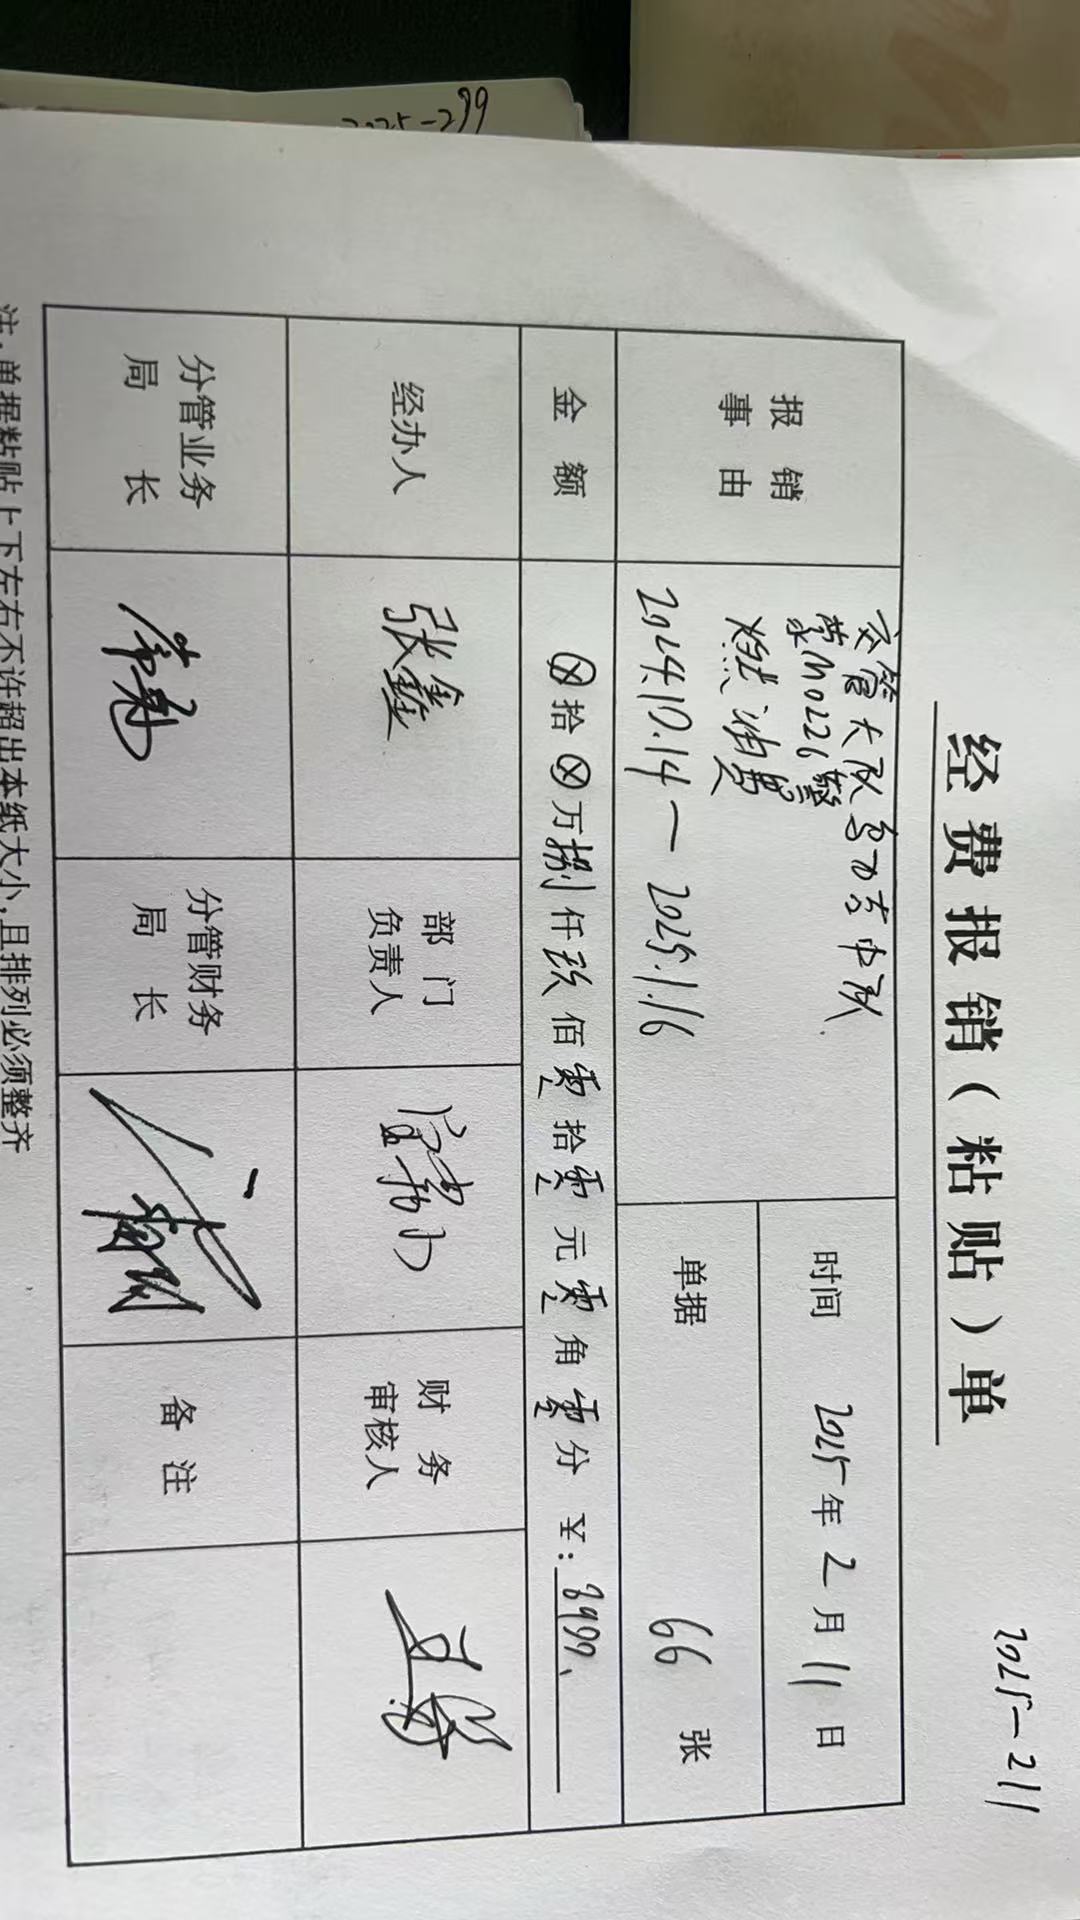 2025-299
2025-211
经费报销(粘贴)单
报销事由
交管大队乌力吉中队
蒙M0226警
燃油费
2024.10.14—2025.1.16
时间 2025年2月11日
单据 66 张
金额 ⊗拾⊗万捌仟玖佰零拾零元零角零分 ¥:8900、
经办人 张鑫 部门负责人 财务审核人
分管业务局长 分管财务局长 备注
注:单据粘贴上下左右不许超出本纸大小,且排列必须整齐